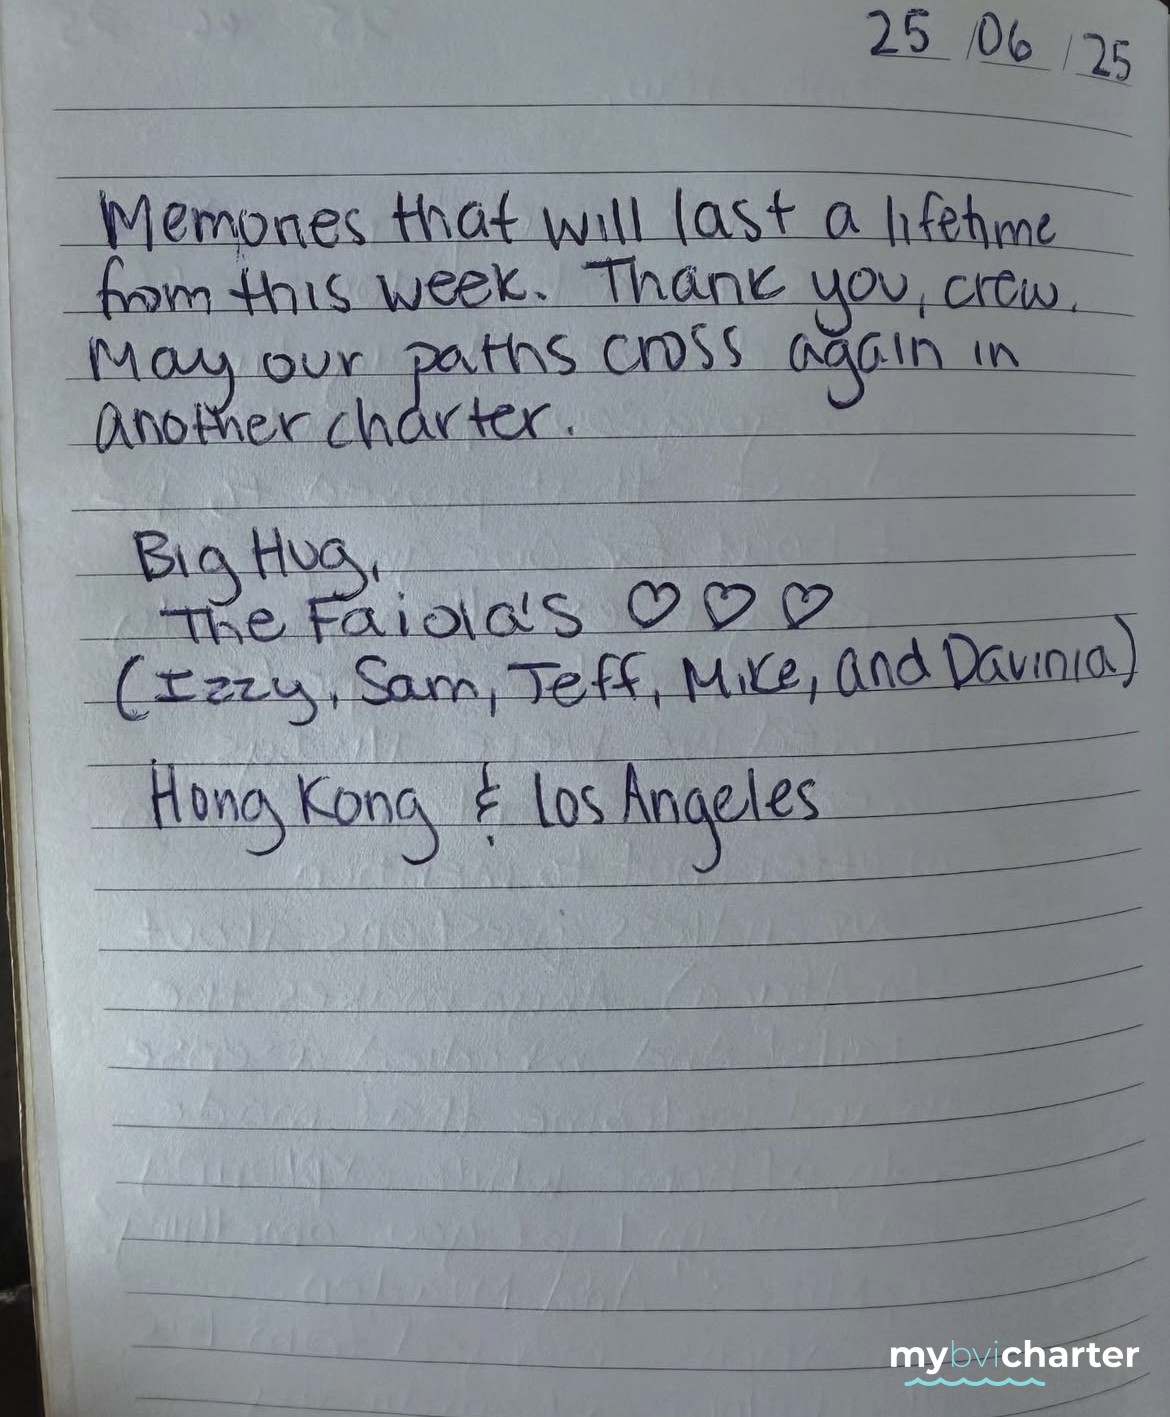 25/06/25
Memories that will last a lifetime
from this week. Thank you, crew.
May our paths cross again in
another charter.
Big Hug,
The Faiola's ♡ ♡ ♡
(Izzy, Sam, Jeff, Mike, and Davinia)
Hong Kong & Los Angeles
mybvicharter